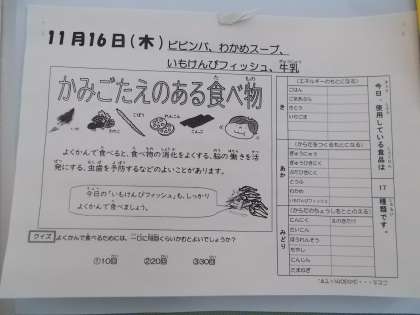 11月16日(木) ビビンバ、わかめスープ、
いもけんぴフィッシュ、牛乳
かみごたえのある食べ物
よくかんで食べると、食べ物の消化をよくする、脳の働きを活
発にする、虫歯を予防するなどのよいことがあります。
今日の「いもけんぴフィッシュ」も、しっかり
よくかんで食べましょう。
クイズ
よくかんで食べるためには、一口に何回くらいかむとよいでしょうか?
①10回 ②20回 ③30回
今日、使用している食品は
17
種類です。
き
(エネルギーのもとになる)
ごはん
ごまあぶら
さとう
あか
(からだをつくるもとになる)
ぎゅうにゅう
ぎゅうひきにく
ぶたひきにく
とうふ
わかめ
いもけんぴフィッシュ
みどり
(からだのちょうしをととのえる)
にんにく
えのきたけ
だいこん
ほうれんそう
もやし
にんじん
たまねぎ